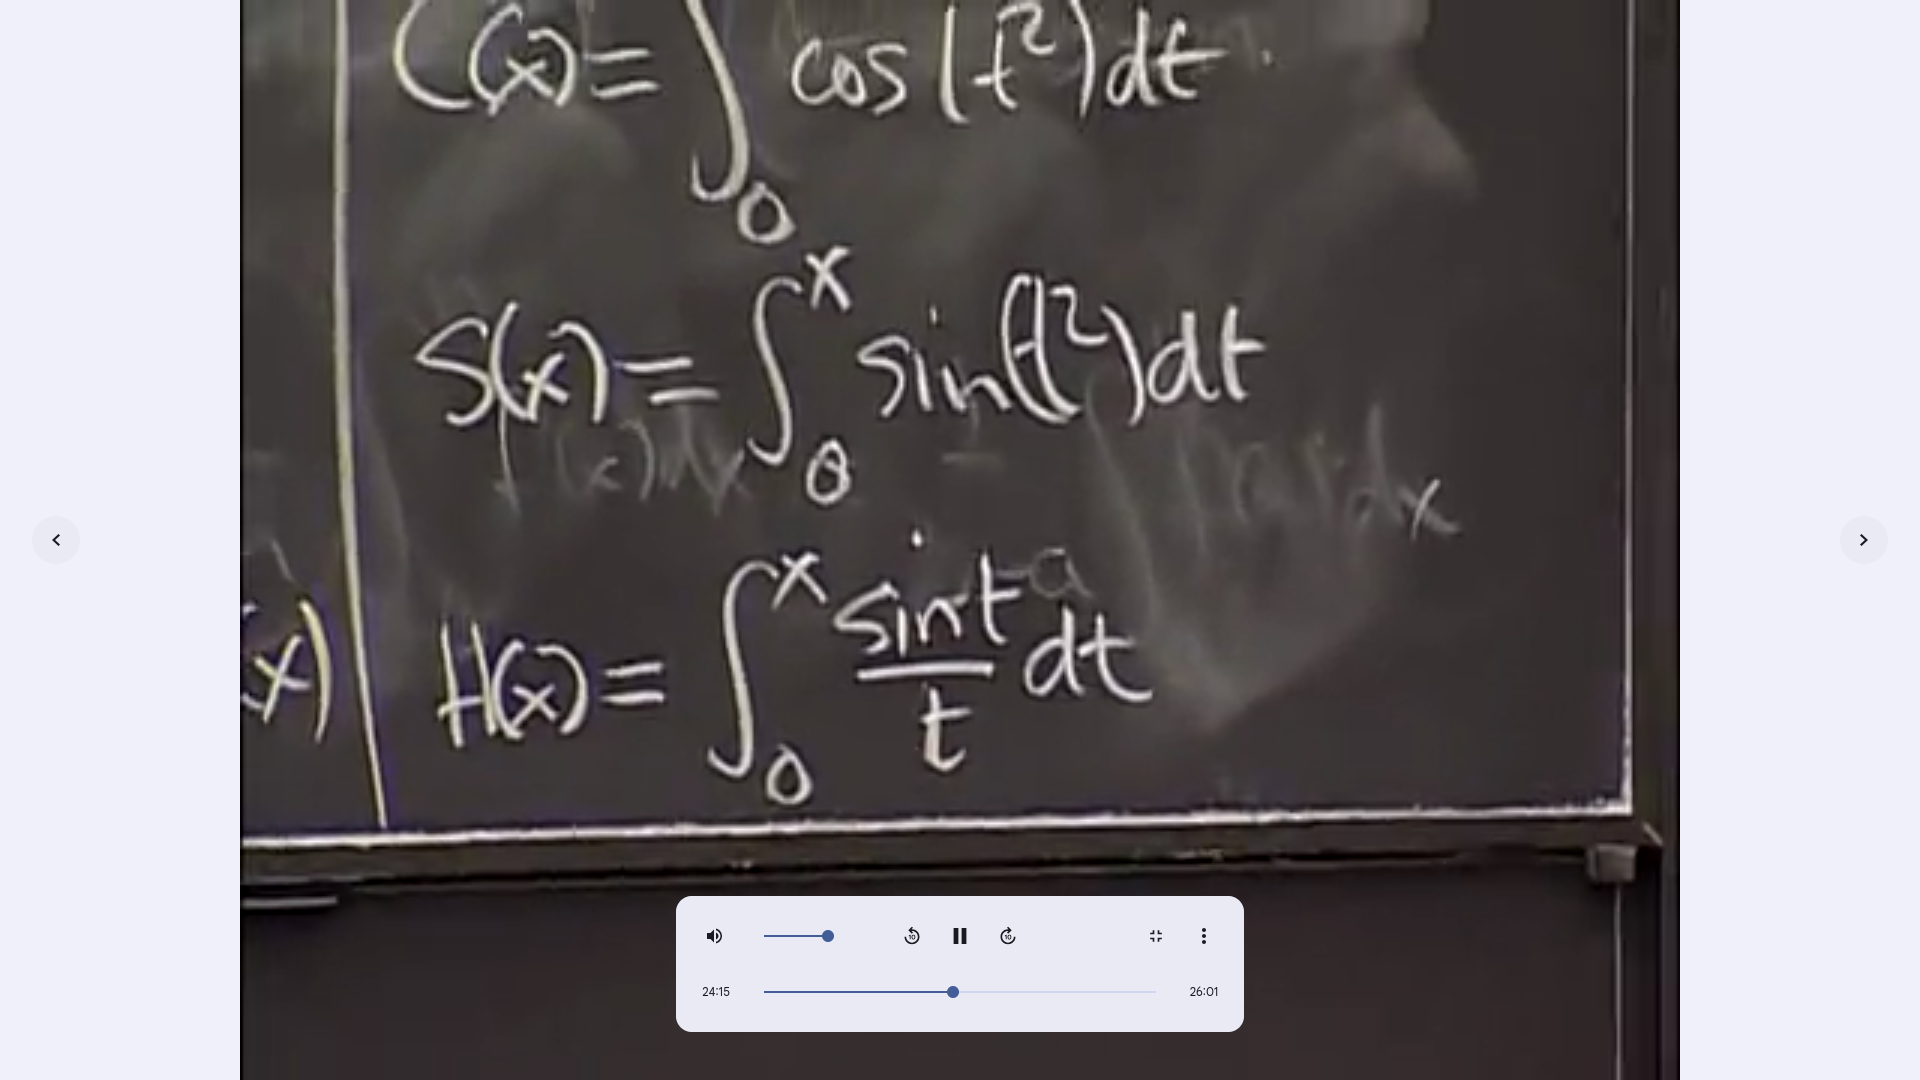 C(x) = ∫₀ cos(t²)dt.
S(x) = ∫₀ˣ sin(t²)dt
(x)dx
dx
(x)
H(x) = ∫₀ˣ sin t / t dt
24:15
26:01